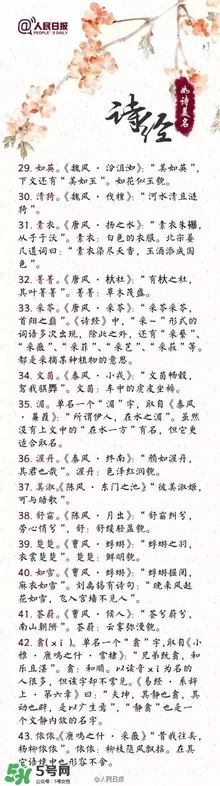 @人民日报
PEOPLE'S DAILY
如诗美名
诗经
29. 如英。《魏风·汾沮洳》：“美如英”，
下文还有“美如玉”。如花似玉貌。
30. 清猗。《魏风·伐檀》：“河水清且涟
猗”。
31. 素衣。《唐风·扬之水》：“素衣朱襮，
从子于沃”。素衣：白色的衣服。北宋晏
几道词曰：“素衣染尽天香，玉酒添成国
色”。
32. 菁菁。《唐风·杕杜》：“有杕之杜，
其叶菁菁”。菁菁：草木茂盛。
33. 采苓。《唐风·采苓》：“采苓采苓，
首阳之巅”。《诗经》中，“采一”形式的
词语多次出现，除此之外，还有“采蘩”、
“采薇”、“采菲”、“采艺”、“采菽”等。
都是采摘某种植物的意思。
34. 文茵。《秦风·小戎》：“文茵畅毂，
驾我骐馵”。文茵：车中的虎皮坐褥。
35. 湄。单名一个“湄”字，取自《秦风
·蒹葭》：“所谓伊人，在水之湄”。虽然
没有上文中的“在水一方”有名，但它更
适合取名。
36. 渥丹。《秦风·终南》：“颜如渥丹，
其君也哉”。渥丹：色泽红润貌。
37. 美淑。《陈风·东门之池》：“彼美淑姬，
可与晤歌”。
38. 舒窈。《陈风·月出》：“舒窈纠兮，
劳心悄兮”，舒：舒缓轻盈貌。
39. 楚楚。《曹风·蜉蝣》：“蜉蝣之羽，
衣裳楚楚”。楚楚：鲜明貌。
40. 如雪。《曹风·蜉蝣》：“蜉蝣掘阅，
麻衣如雪”。刘禹锡有诗句：“晚来风起
花如雪，飞入宫墙不见人”。
41. 荟蔚。《曹风·候人》：“荟兮蔚兮，
南山朝隮”。荟蔚：云雾弥漫貌。
42. 翕(xi)。单名一个“翕”字，取自《小
雅·鹿鸣之什·常棣》：“兄弟既翕，和
乐且湛”。翕：和顺。以读音xi为名的
人很多，但该字却不常见。《易经·系辞
上·第六章》曰：“夫坤，其静也翕，其
动也辟，是以广生焉”，“静翕”也是一
个文静内敛的名字。
43. 依依。《鹿鸣之什·采薇》“昔我往矣，
杨柳依依”。依依：柳枝随风飘拂。在其
它语境中也形容不舍。
5号网
@人民日报